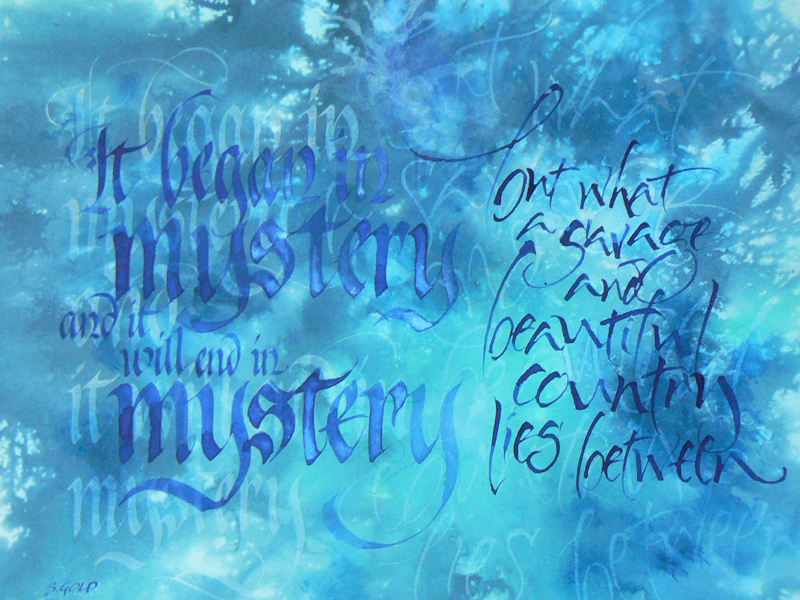 It began in
mystery
and it
will end in
mystery
but what
a savage
and
beautiful
country
lies between
S. GOLD